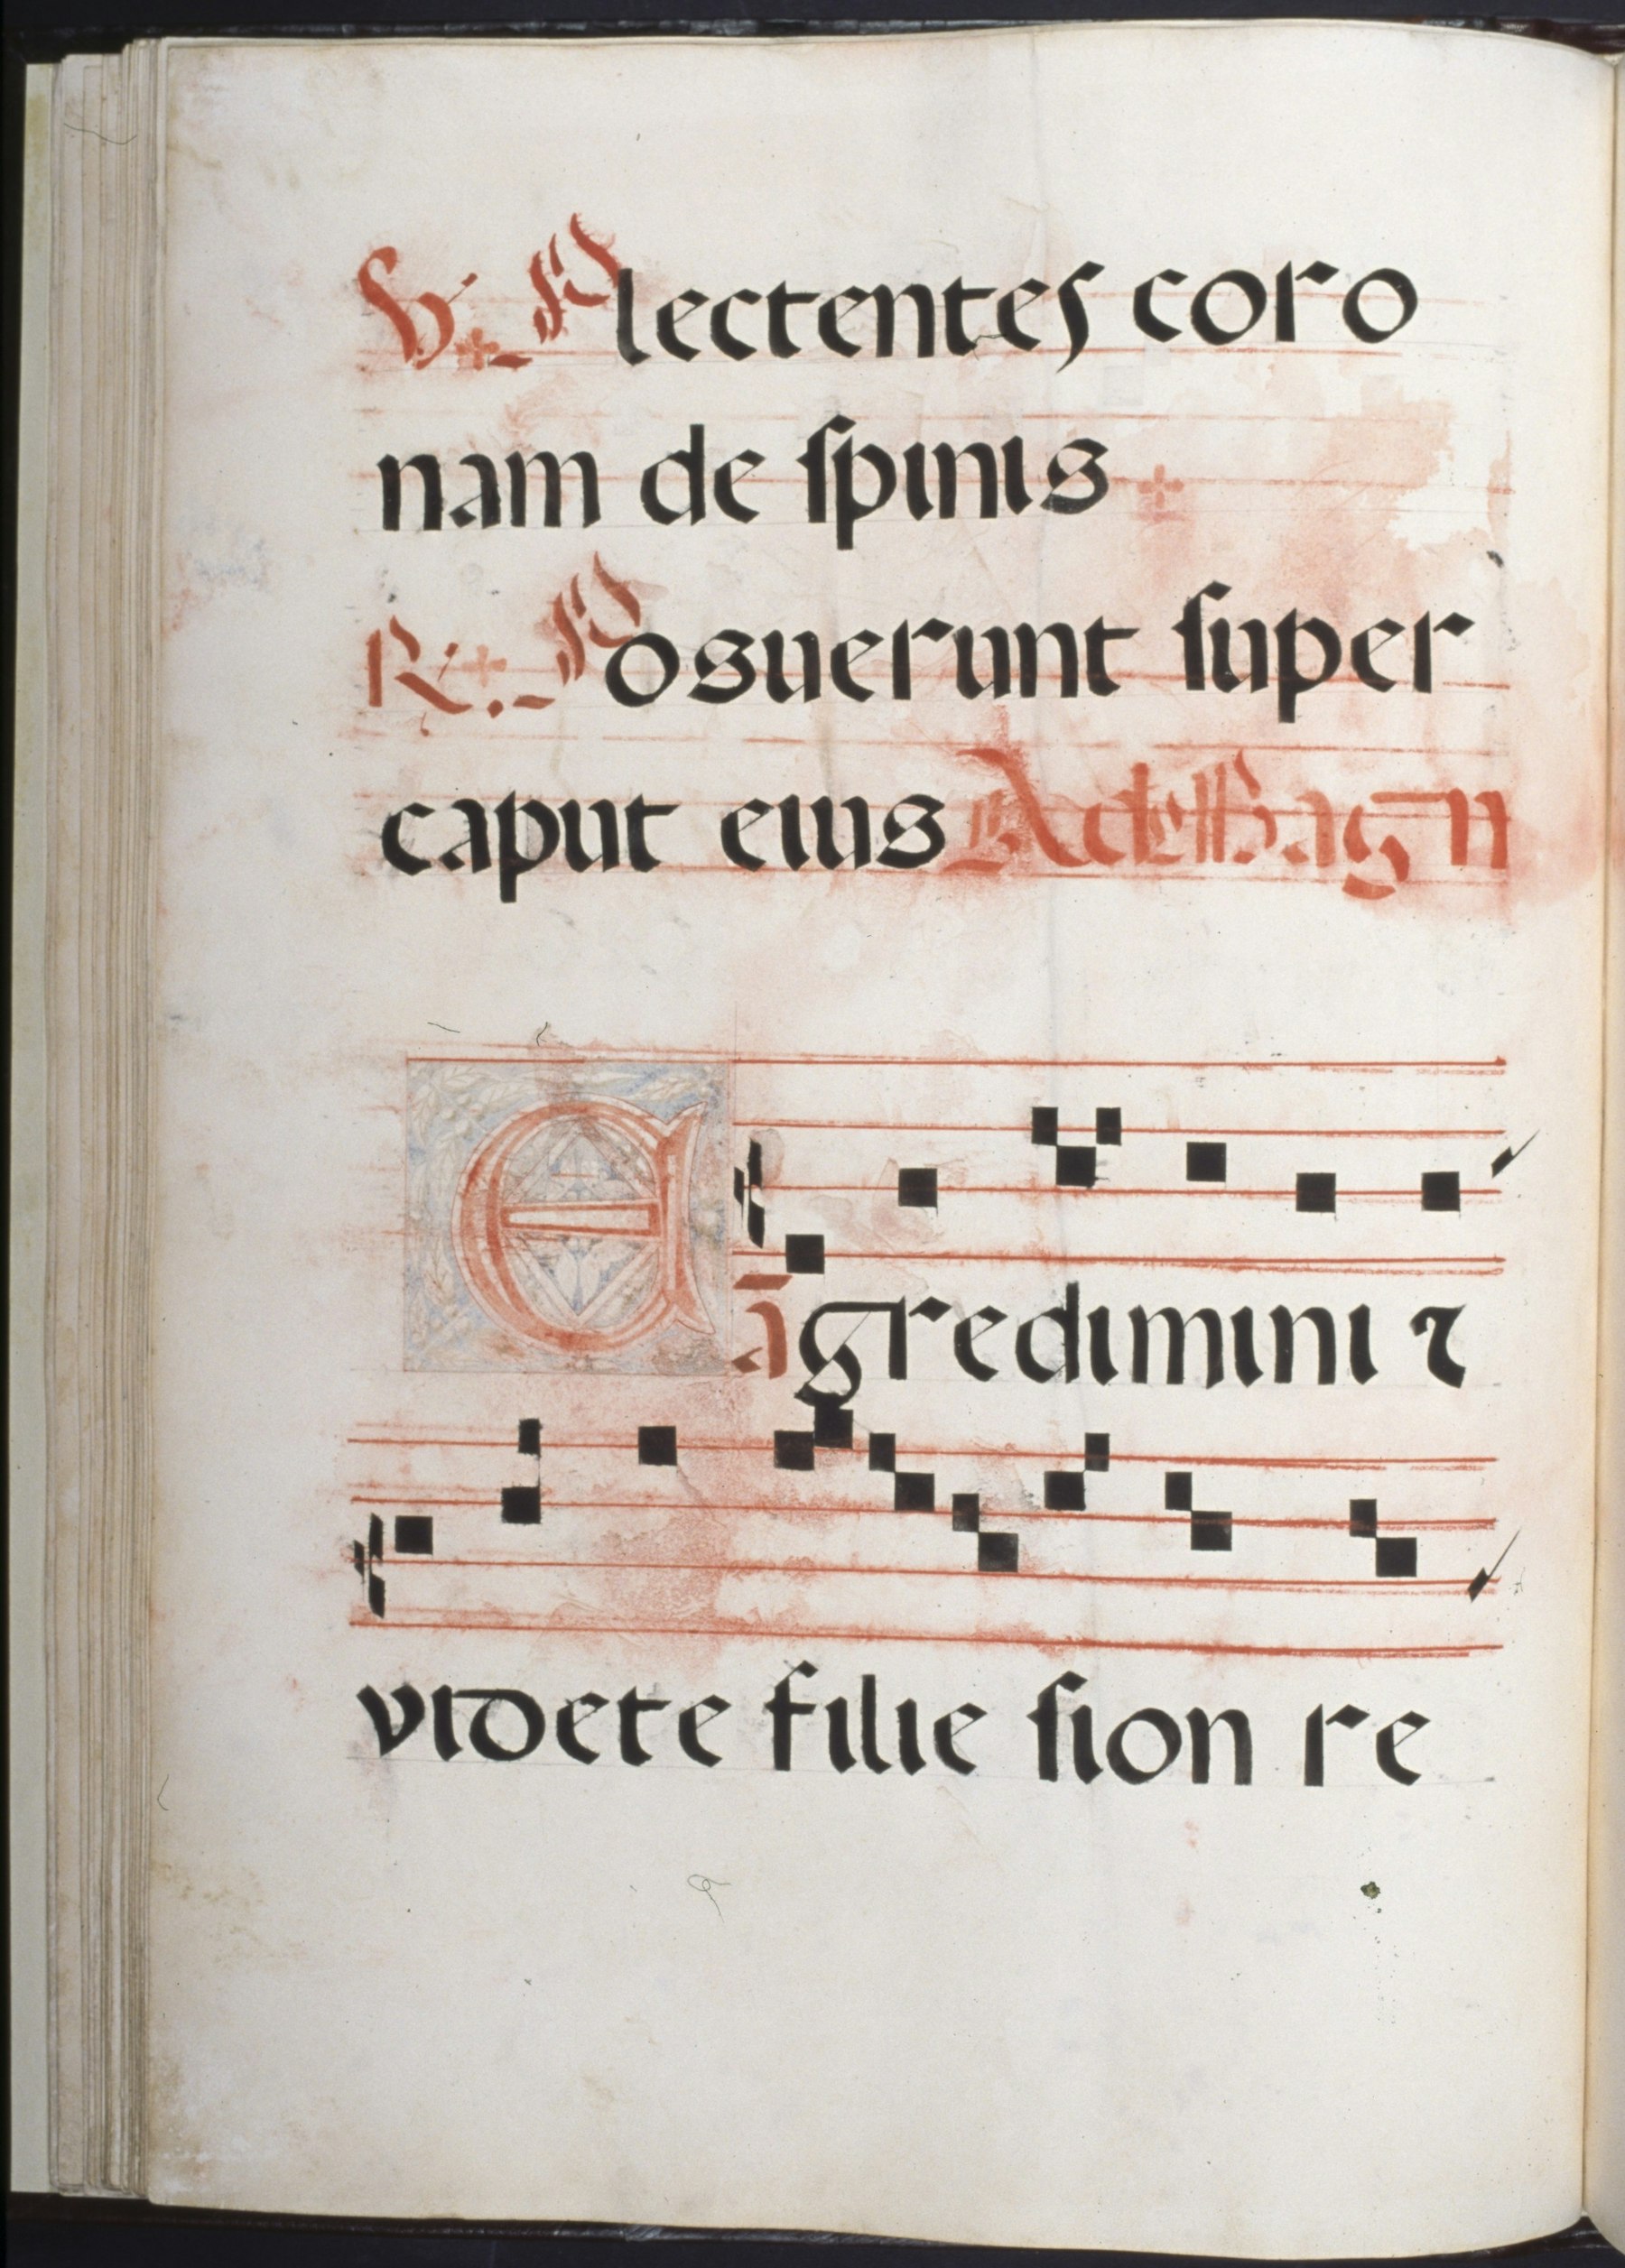 ℣. Plectentes coro
nam de ſpinis
℟. Posuerunt ſuper
caput eius Ad Magn
Egredimini ⁊ ā
videte filie ſion re